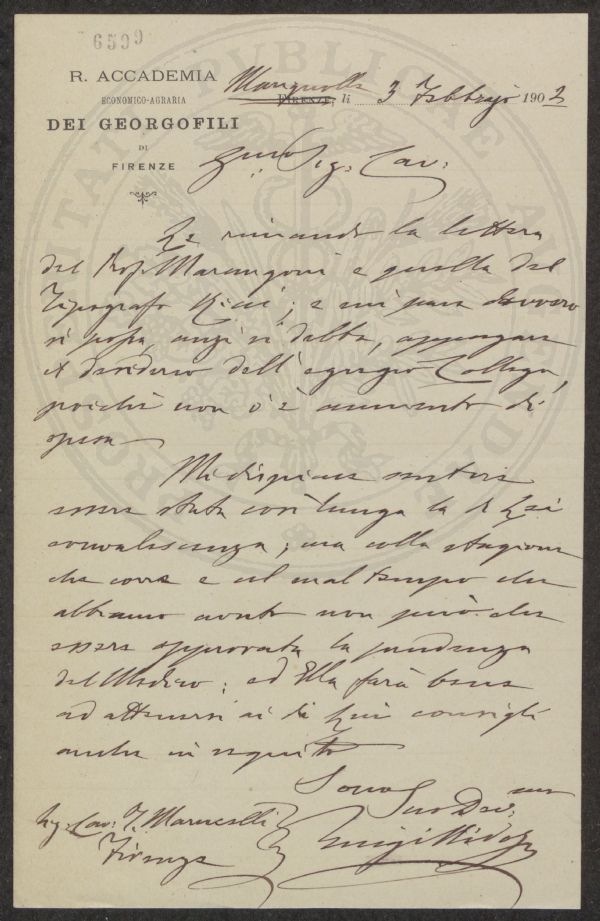 6599
R. ACCADEMIA
ECONOMICO-AGRARIA
DEI GEORGOFILI
DI
FIRENZE
Marignolle
FIRENZE, li 3 Febbrajo 1902
Sig: Cav:
Le rimando la lettera
del Prof. Marangoni e quella del
Tipografo Ricci; e mi pare davvero
si possa, anzi si debba, appagare
il desiderio dell'egregio Collega,
poichè non c'è aumento di
spesa.
Mi dispiace sentire
essere stata così lunga la di Lei
convalescenza; ma colla stagione
che corre e col mal tempo che
abbiamo avuto non può che
essere approvata la prudenza
del Medico; ed Ella farà bene
ad attenersi ai di Lui consigli
anche in seguito.
Sono
Suo Dev:mo
Luigi Ridolfi
Sig. Cav. F. Marucelli
Firenze
PROSPERITATI PUBLICAE AUGENDAE